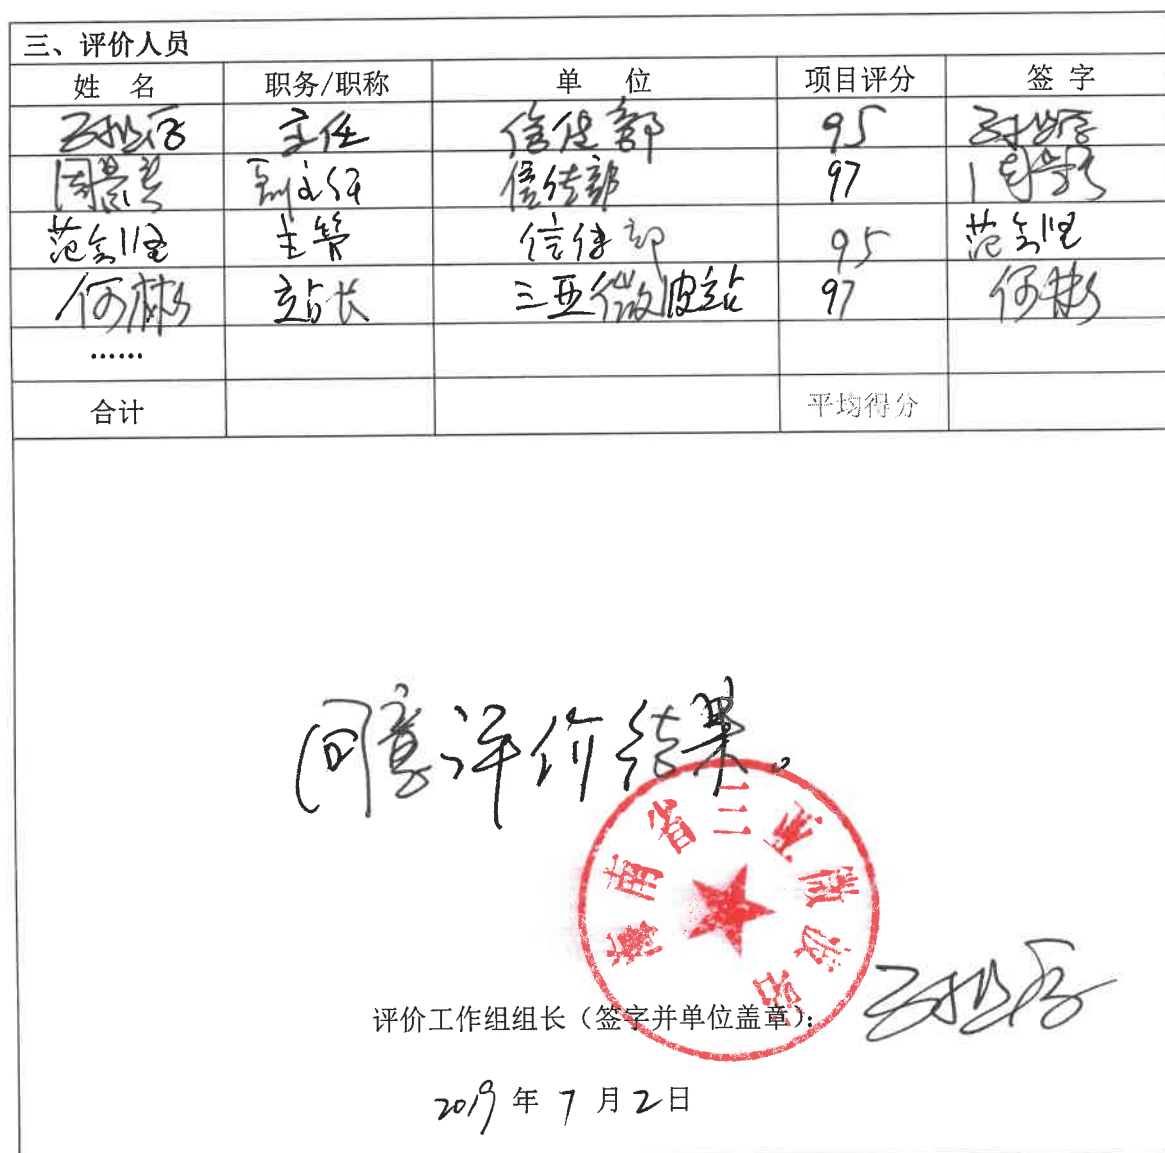 三、评价人员
姓 名 职务/职称 单 位 项目评分 签 字
主任 信传部 95
副主任 信传部 97
范会II 主管 信传部 95 范会
何彬 站长 三亚微波站 97 何彬
……
合计 平均得分
同意评价结果。
海南省三亚微波站
评价工作组组长（签字并单位盖章）：
2019 年 7 月 2 日